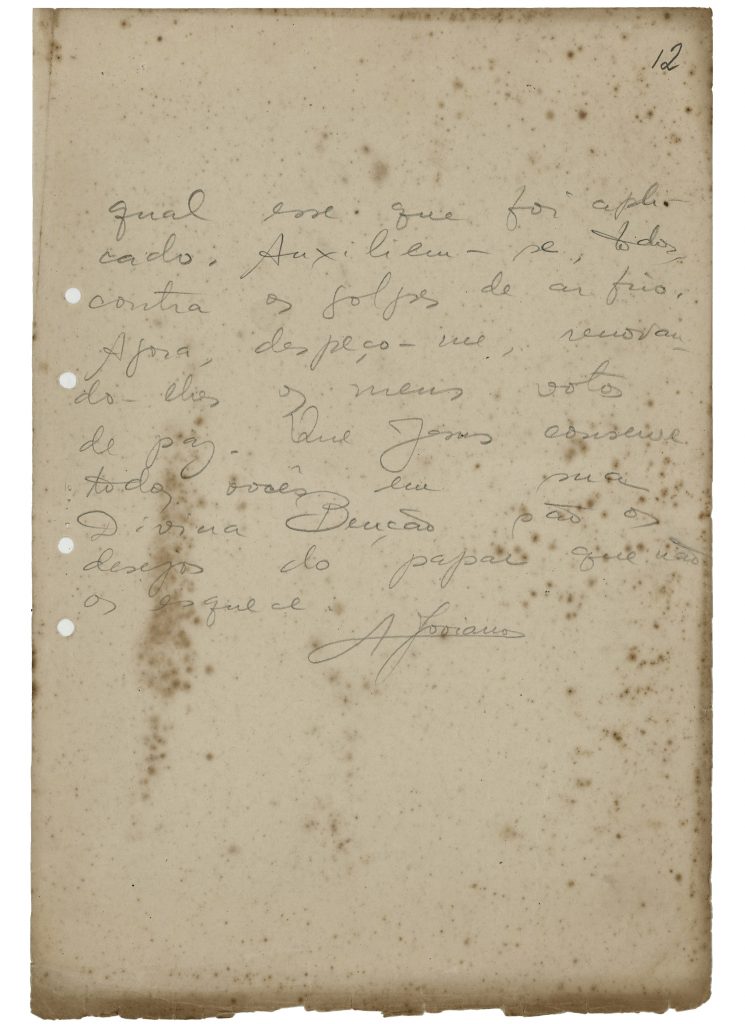 12
qual esse que foi apli-
cado. Auxiliem-se, todos,
contra os golpes de ar frio.
Agora, despeço-me, renovan-
do-lhes os meus votos
de paz. Que Jesus conserve
todos vocês em sua
Divina Benção são os
desejos do papai que não
os esquece.
A Joviano